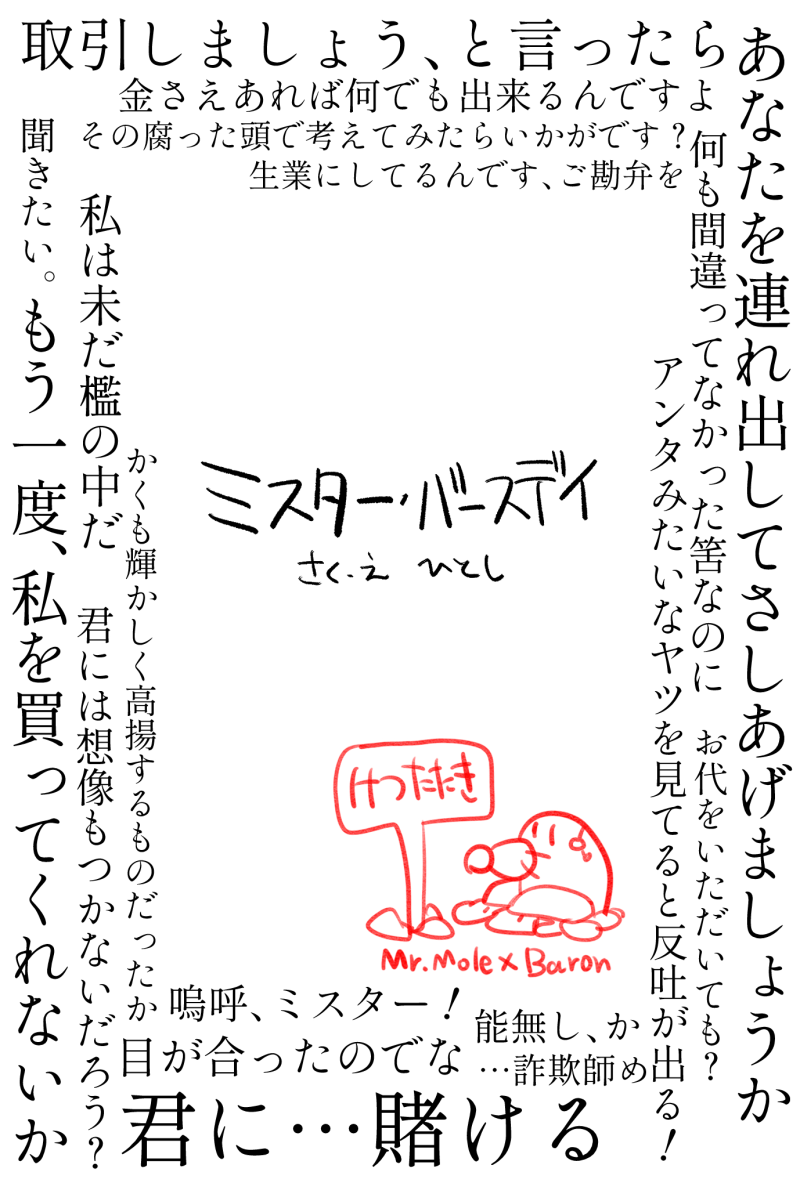 取引しましょう、と言ったら
金さえあれば何でも出来るんですよ
その腐った頭で考えてみたらいかがです？
生業にしてるんです、ご勘弁を
あなたを連れ出してさしあげましょうか
何も間違ってなかった筈なのに
お代をいただいても？
アンタみたいなヤツを見てると反吐が出る！
ミスター・バースデイ
さく・え ひとし
けつたたき
Mr.Mole×Baron
かくも輝かしく高揚するものだったか
私は未だ檻の中だ
君には想像もつかないだろう？
聞きたい。もう一度、私を買ってくれないか
嗚呼、ミスター！
能無し、か
目が合ったのでな
…詐欺師め
君に…賭ける